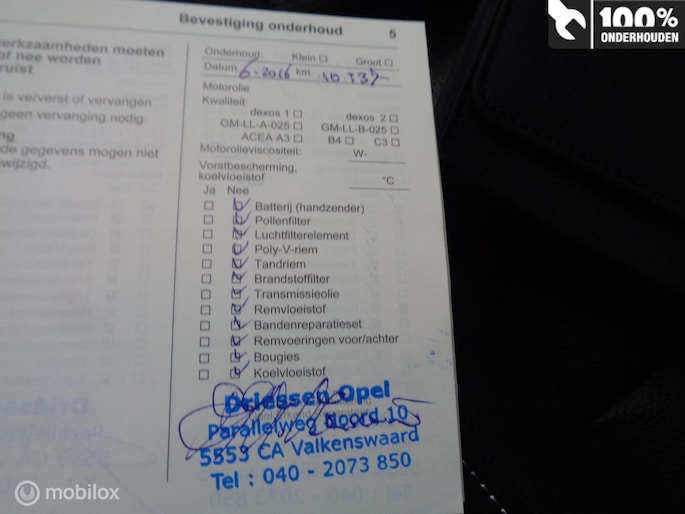 100%
ONDERHOUDEN
Bevestiging onderhoud 5
erkzaamheden moeten
of nee worden
ruist
is ververst of vervangen
geen vervanging nodig
ng
de gegevens mogen niet
wijzigd.
Onderhoud: Klein Groot
Datum 6-2016 km 10.337
Motorolie
Kwaliteit:
dexos 1 dexos 2
GM-LL-A-025 GM-LL-B-025
ACEA A3 B4 C3
Motorolieviscositeit: W-
Vorstbescherming,
koelvloeistof °C
Ja Nee
Batterij (handzender)
Pollenfilter
Luchtfilterelement
Poly-V-riem
Tandriem
Brandstoffilter
Transmissieolie
Remvloeistof
Bandenreparatieset
Remvoeringen voor/achter
Bougies
Koelvloeistof
Driessen Opel
Parallelweg Noord 10
5553 CA Valkenswaard
Tel : 040 - 2073 850
mobilox